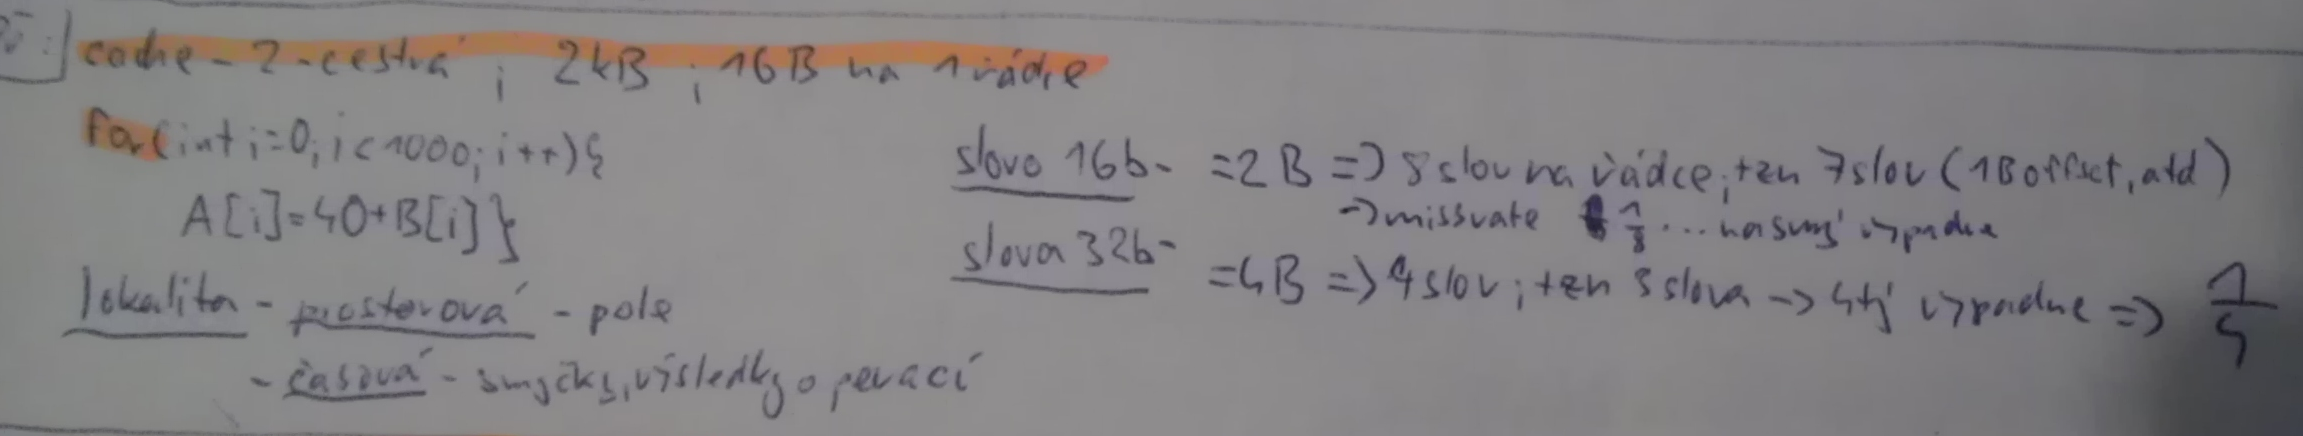 cache - 2-cestná ; 2kB ; 16B na 1 řádce
for(int i=0; i<1000; i++){
A[i]=40+B[i]}
lokalita - prostorová - pole
- časová - smyčky, výsledky operací
slovo 16b - =2B => 8 slov na řádce; tzn 7 slov (1B offset, atd)
-> missrate 1/8 ... výpadne
slova 32b - =4B => 4 slov; tzn 3 slova -> 4tý výpadne => 1/4